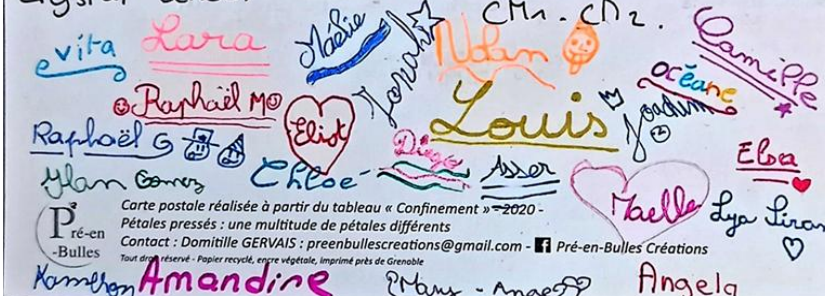 CM1 - CM2.
evita Lara Maélie Zorah Nolan Camille
Raphaël M Eliot Louis Joachim Océane
Raphaël G Diego Elsa
Ylan Gomez Chloé Asser Maelle Lya
Pré-en
-Bulles
Carte postale réalisée à partir du tableau « Confinement » - 2020 -
Pétales pressés : une multitude de pétales différents
Contact : Domitille GERVAIS : preenbullescreations@gmail.com - Pré-en-Bulles Créations
Tout droit réservé - Papier recyclé, encre végétale, imprimé près de Grenoble
Amandine Angela